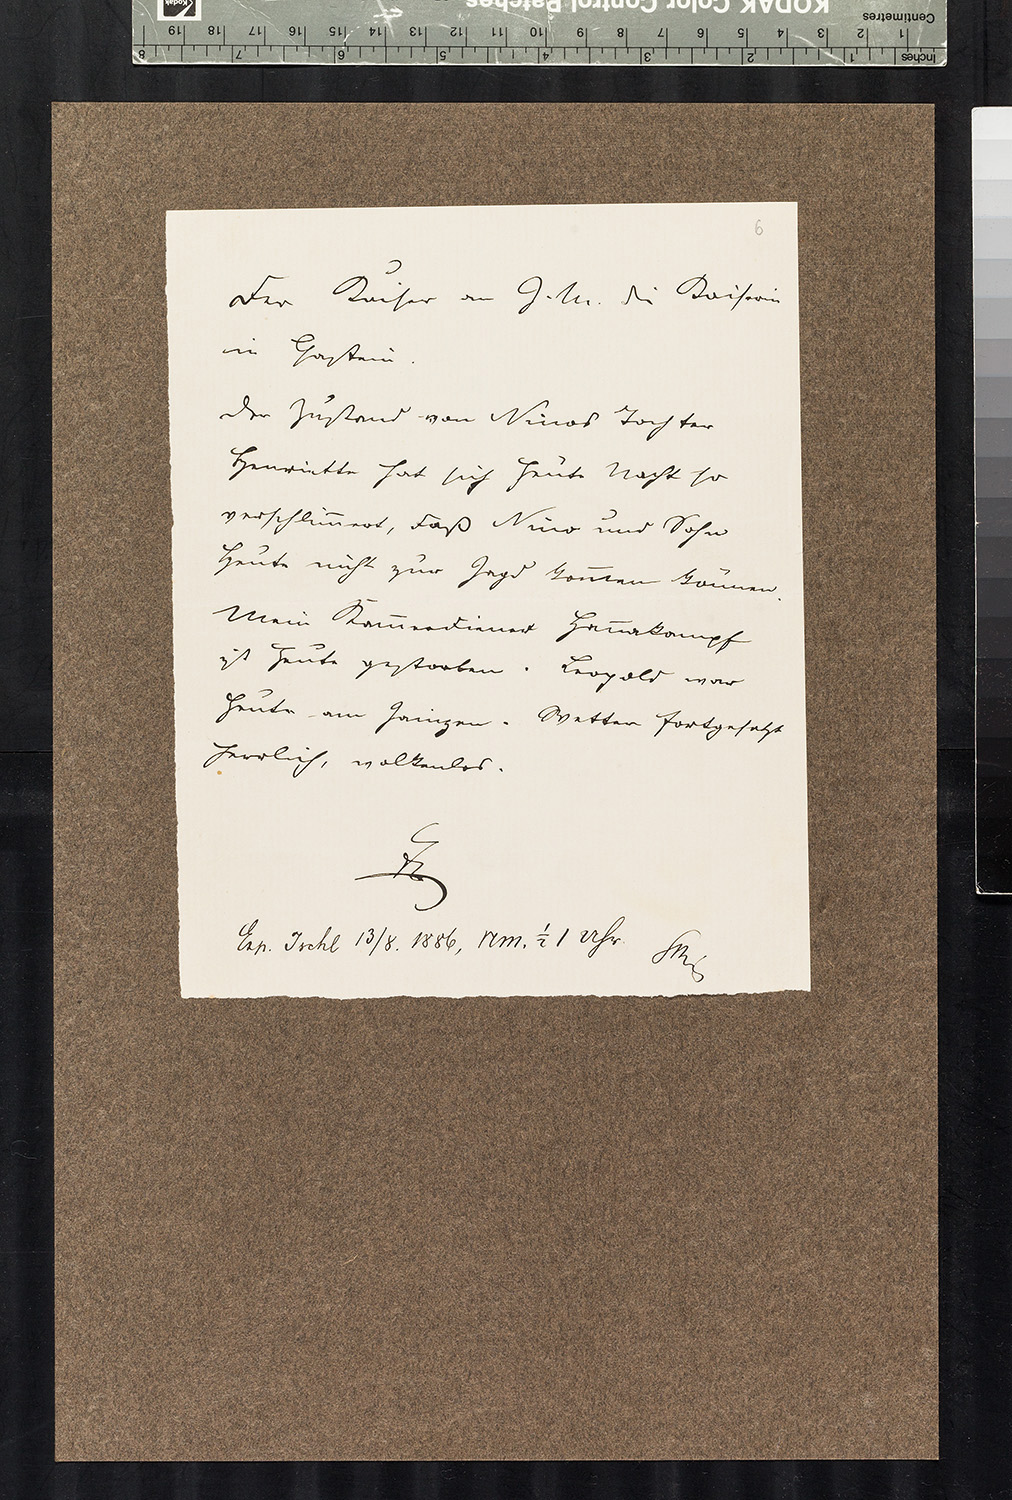 KODAK Color Control Patches
Kodak
Centimetres
1 2 3 4 5 6 7 8 9 10 11 12 13 14 15 16 17 18 19
Inches 1 2 3 4 5 6 7 8
6
Der Kaiser an I. M. die Kaiserin
in Gastein.
Der Zustand von Ninos Tochter
Henriette hat sich heute Nacht so
verschlim̅ert, daß Nino und Sohn
heute nicht zur Jagd kom̅en kön̅en.
Mein Kam̅erdiener
ist heute gestorben. Leopold war
heute am Jainzen. Wetter fortgesetzt
herrlich, wolkenlos.
Exp. Ischl 13/8. 1886, Nm. ½ 1 Uhr.